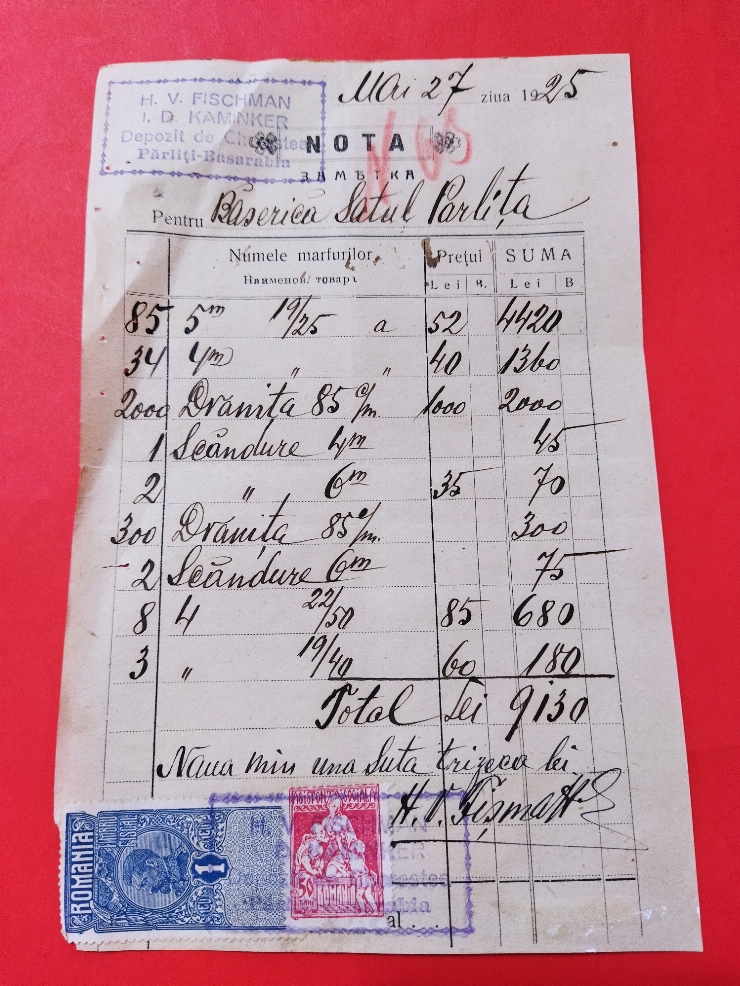 H. V. FISCHMAN
I. D. KAMINKER
Depozit de
Părliţi-Basarabia
Mai 27 ziua 1925
NOTA
ЗАМѢТКА
N 65
Pentru Băserica Satul Parlița
Numele marfurilor Preţul SUMA
Наименов. товара Lei B. Lei B
85 5m 19/25 a 52 4420
34 4m " " 40 1360
2000 Drănița 85 c/m 1000 2000
1 Scăndure 4m 45
2 " 6m 35 70
300 Drănița 85 c/m. 300
2 Scăndure 6m 75
8 4 22/50 85 680
3 " 19/40 60 180
Total Lei 9130
Naua min una suta trizeca lei
H. V. Fișman
ROMANIA
TIMBRU FISCAL
1 LEU
ASISTENȚA SOCIALĂ
50 BANI
ROMANIA
al.